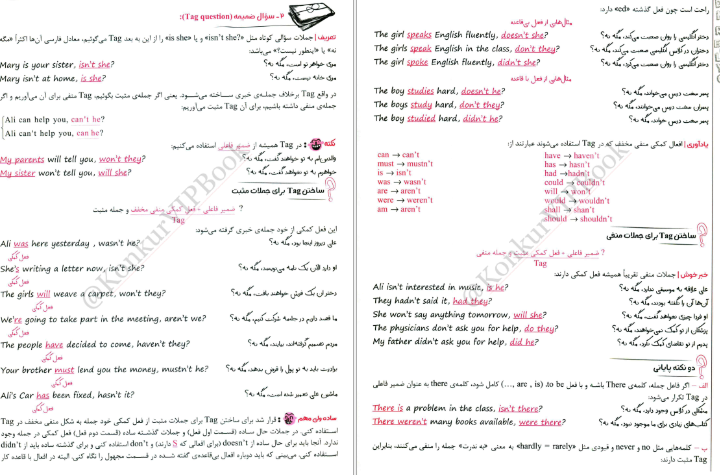 ۲- سؤال ضمیمه (Tag question):
تعریف | جملات سؤالی کوتاه مثل «isn't she?» و یا «is she» را از این به بعد Tag می‌گوئیم، معادل فارسی آن‌ها اکثراً «مگه
نه» یا «اینطور نیست؟» می‌باشد:
Mary is your sister, isn't she?
مری خواهر تو است، مگه نه؟
Mary isn't at home, is she?
مری خانه نیست، مگه نه؟
در واقع Tag برخلاف جمله‌ی خبری ساخته می‌شود. یعنی اگر جمله‌ی مثبت بگوئیم، Tag منفی برای آن می‌آوریم و اگر
جمله‌ی منفی داشته باشیم، برای آن Tag مثبت می‌آوریم:
Ali can help you, can't he?
Ali can't help you, can he?
نکته: در Tag همیشه از ضمیر فاعلی استفاده می‌کنیم:
My parents will tell you, won't they?
والدین‌ام به تو خواهند گفت، مگه نه؟
My sister won't tell you, will she?
خواهرم به تو نخواهد گفت، مگه نه؟
ساختن Tag برای جملات مثبت
? ضمیر فاعلی + فعل کمکی منفی مخفف و جمله مثبت
Tag
این فعل کمکی از خود جمله‌ی خبری گرفته می‌شود:
Ali was here yesterday , wasn't he?
علی دیروز اینجا بود، مگه نه؟
فعل کمکی
She's writing a letter now, isn't she?
او دارد الان یک نامه می‌نویسد، مگه نه؟
فعل کمکی
The girls will weave a carpet, won't they?
دختران یک فرش خواهند بافت، مگه نه؟
فعل کمکی
We're going to take part in the meeting, aren't we?
ما قصد داریم در جلسه شرکت کنیم، مگه نه؟
فعل کمکی
The people have decided to come, haven't they?
مردم تصمیم گرفته‌اند، بیایند، مگه نه؟
فعل کمکی
Your brother must lend you the money, mustn't he?
برادرت باید به تو پول را قرض بدهد، مگه نه؟
فعل کمکی
Ali's Car has been fixed, hasn't it?
ماشین علی تعمیر شده است، مگه نه؟
فعل کمکی
ساده ولی مهم: قرار شد برای ساختن Tag برای جملات مثبت از فعل کمکی خود جمله به شکل منفی مخفف در Tag
استفاده کنی. در جملات حال ساده (قسمت اول فعل) و جملات گذشته ساده (قسمت دوم فعل) فعل کمکی در جمله وجود
ندارد. آنجا باید برای حال ساده از doesn't (برای افعالی که S دارند) و don't استفاده کنی و برای گذشته ساده باید از didn't
استفاده کنی. می‌بینی که باید دوباره افعال بی‌قاعده‌ی گفته شده در قسمت مجهول را نگاه کنی. البته در افعال با قاعده کار
راحت است چون فعل گذشته «ed» دارد:
مثال‌هایی از فعل بی‌قاعده
The girl speaks English fluently, doesn't she?
دختر انگلیسی را روان صحبت می‌کند، مگه نه؟
The girls speak English in the class, don't they?
دختران در کلاس انگلیسی صحبت می‌کنند، مگه نه؟
The girl spoke English fluently, didn't she?
دختر انگلیسی را روان صحبت می‌کرد، مگه نه؟
مثال‌هایی از فعل با قاعده
The boy studies hard, doesn't he?
پسر سخت درس می‌خواند، مگه نه؟
The boys study hard, don't they?
پسران سخت درس می‌خوانند، مگه نه؟
The boy studied hard, didn't he?
پسر سخت درس خواند، مگه نه؟
یادآوری | افعال کمکی منفی مخفف که در Tag استفاده می‌شوند عبارتند از:
can → can't
must → mustn't
is → isn't
was → wasn't
are → aren't
were → weren't
am → aren't
have → haven't
has → hasn't
had → hadn't
could → couldn't
will → won't
would → wouldn't
shall → shan't
should → shouldn't
ساختن Tag برای جملات منفی
? ضمیر فاعلی + فعل کمکی مثبت و جمله منفی
Tag
خبر خوش | جملات منفی تقریباً همیشه فعل کمکی دارند:
Ali isn't interested in music, is he?
علی علاقه به موسیقی ندارد، مگه نه؟
They hadn't said it, had they?
آن‌ها آن را نگفته بودند، مگه نه؟
She won't say anything tomorrow, will she?
او فردا چیزی نخواهد گفت، مگه نه؟
The physicians don't ask you for help, do they?
پزشکان از تو کمک نمی‌خواهند، مگه نه؟
My father didn't ask you for help, did he?
پدرم از تو تقاضای کمک نکرد، مگه نه؟
دو نکته پایانی
الف – اگر فاعل جمله، کلمه‌ی There باشه و با فعل to be (is ,are , …) کامل شود، کلمه‌ی there به عنوان ضمیر فاعلی
در Tag تکرار می‌شود:
There is a problem in the class, isn't there?
مشکلی در کلاس وجود دارد، مگه نه؟
There weren't many books available, were there?
کتاب‌های زیادی برای ما موجود نبود، مگه نه؟
ب – کلمه‌هایی مثل no و never و قیودی مثل «hardly = rarely» به معنی «به ندرت» جمله را منفی می‌کنند، بنابراین
Tag مثبت دارند:
@KonkurVIPBook
@KonkurVIPBook